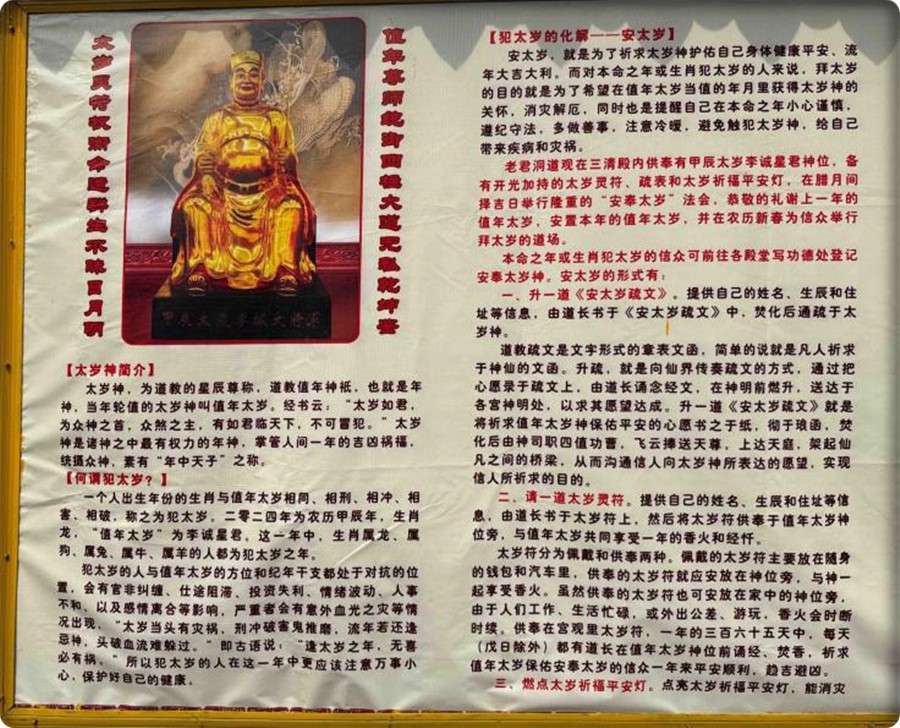 太岁灵符权衡命运群生不昧日月朝
值年尊师统御四极大道无私乾坤鉴
甲辰太岁李诚大将军
【太岁神简介】
太岁神，为道教的星辰尊称，道教值年神祇，也就是年
神，当年轮值的太岁神叫值年太岁。经书云：“太岁如君，
为众神之首，众煞之主，有如君临天下，不可冒犯。”太岁
神是诸神之中最有权力的年神，掌管人间一年的吉凶祸福，
统摄众神，素有“年中天子”之称。
【何谓犯太岁？】
一个人出生年份的生肖与值年太岁相同、相刑、相冲、相
害、相破，称之为犯太岁。二零二四年为农历甲辰年，生肖
龙，“值年太岁”为李诚星君。这一年中，生肖属龙、属
狗、属兔、属牛、属羊的人都为犯太岁之年。
犯太岁的人与值年太岁的方位和纪年干支都处于对抗的位
置，会有官非纠缠、仕途阻滞、投资失利、情绪波动、人事
不和、以及感情离合等影响，严重者会有意外血光之灾等情
况出现，“太岁当头有灾祸，刑冲破害鬼推磨，流年若还逢
忌神，头破血流难躲过。”即古语说：“逢太岁之年，无喜
必有祸。”所以犯太岁的人在这一年中更应该注意万事小
心，保护好自己的健康。
【犯太岁的化解——安太岁】
安太岁，就是为了祈求太岁神护佑自己身体健康平安、流
年大吉大利。而对本命之年或生肖犯太岁的人来说，拜太岁
的目的就是为了希望在值年太岁当值的年月里获得太岁神的
关怀，消灾解厄，同时也是提醒自己在本命之年小心谨慎，
遵纪守法，多做善事，注意冷暖，避免触犯太岁神，给自己
带来疾病和灾祸。
老君洞道观在三清殿内供奉有甲辰太岁李诚星君神位，备
有开光加持的太岁灵符、疏表和太岁祈福平安灯，在腊月间
择吉日举行隆重的“安奉太岁”法会，恭敬的礼谢上一年的
值年太岁，安置本年的值年太岁，并在农历新春为信众举行
拜太岁的道场。
本命之年或生肖犯太岁的信众可前往各殿堂写功德处登记
安奉太岁神。安太岁的形式有：
一、升一道《安太岁疏文》。提供自己的姓名、生辰和住
址等信息，由道长书于《安太岁疏文》中，焚化后通疏于太
岁神。
道教疏文是文字形式的章表文函，简单的说就是凡人祈求
于神仙的文函。升疏，就是向仙界传奏疏文的方式，通过把
心愿录于疏文上，由道长诵念经文，在神明前燃升，送达于
各宫神明处，以求其愿望达成。升一道《安太岁疏文》就是
将祈求值年太岁神保佑平安的心愿书之于纸，彻于琅函，焚
化后由神司职四值功曹，飞云捧送天尊，上达天庭，架起仙
凡之间的桥梁，从而沟通信人向太岁神所表达的愿望，实现
信人所祈求的目的。
二、请一道太岁灵符。提供自己的姓名、生辰和住址等信
息，由道长书于太岁符上，然后将太岁符供奉于值年太岁神
位旁，与值年太岁共同享受一年的香火和经忏。
太岁符分为佩戴和供奉两种。佩戴的太岁符主要放在随身
的钱包和汽车里，供奉的太岁符就应安放在神位旁，与神一
起享受香火。虽然供奉的太岁符也可安放在家中的神位旁，
由于人们工作、生活忙碌，或外出公差、游玩，香火会时断
时续。供奉在宫观里太岁符，一年的三百六十五天中，每天
（戊日除外）都有道长在值年太岁神位前诵经、焚香，祈求
值年太岁保佑安奉太岁的信众一年来平安顺利，趋吉避凶。
三、燃点太岁祈福平安灯。点亮太岁祈福平安灯，能消灾